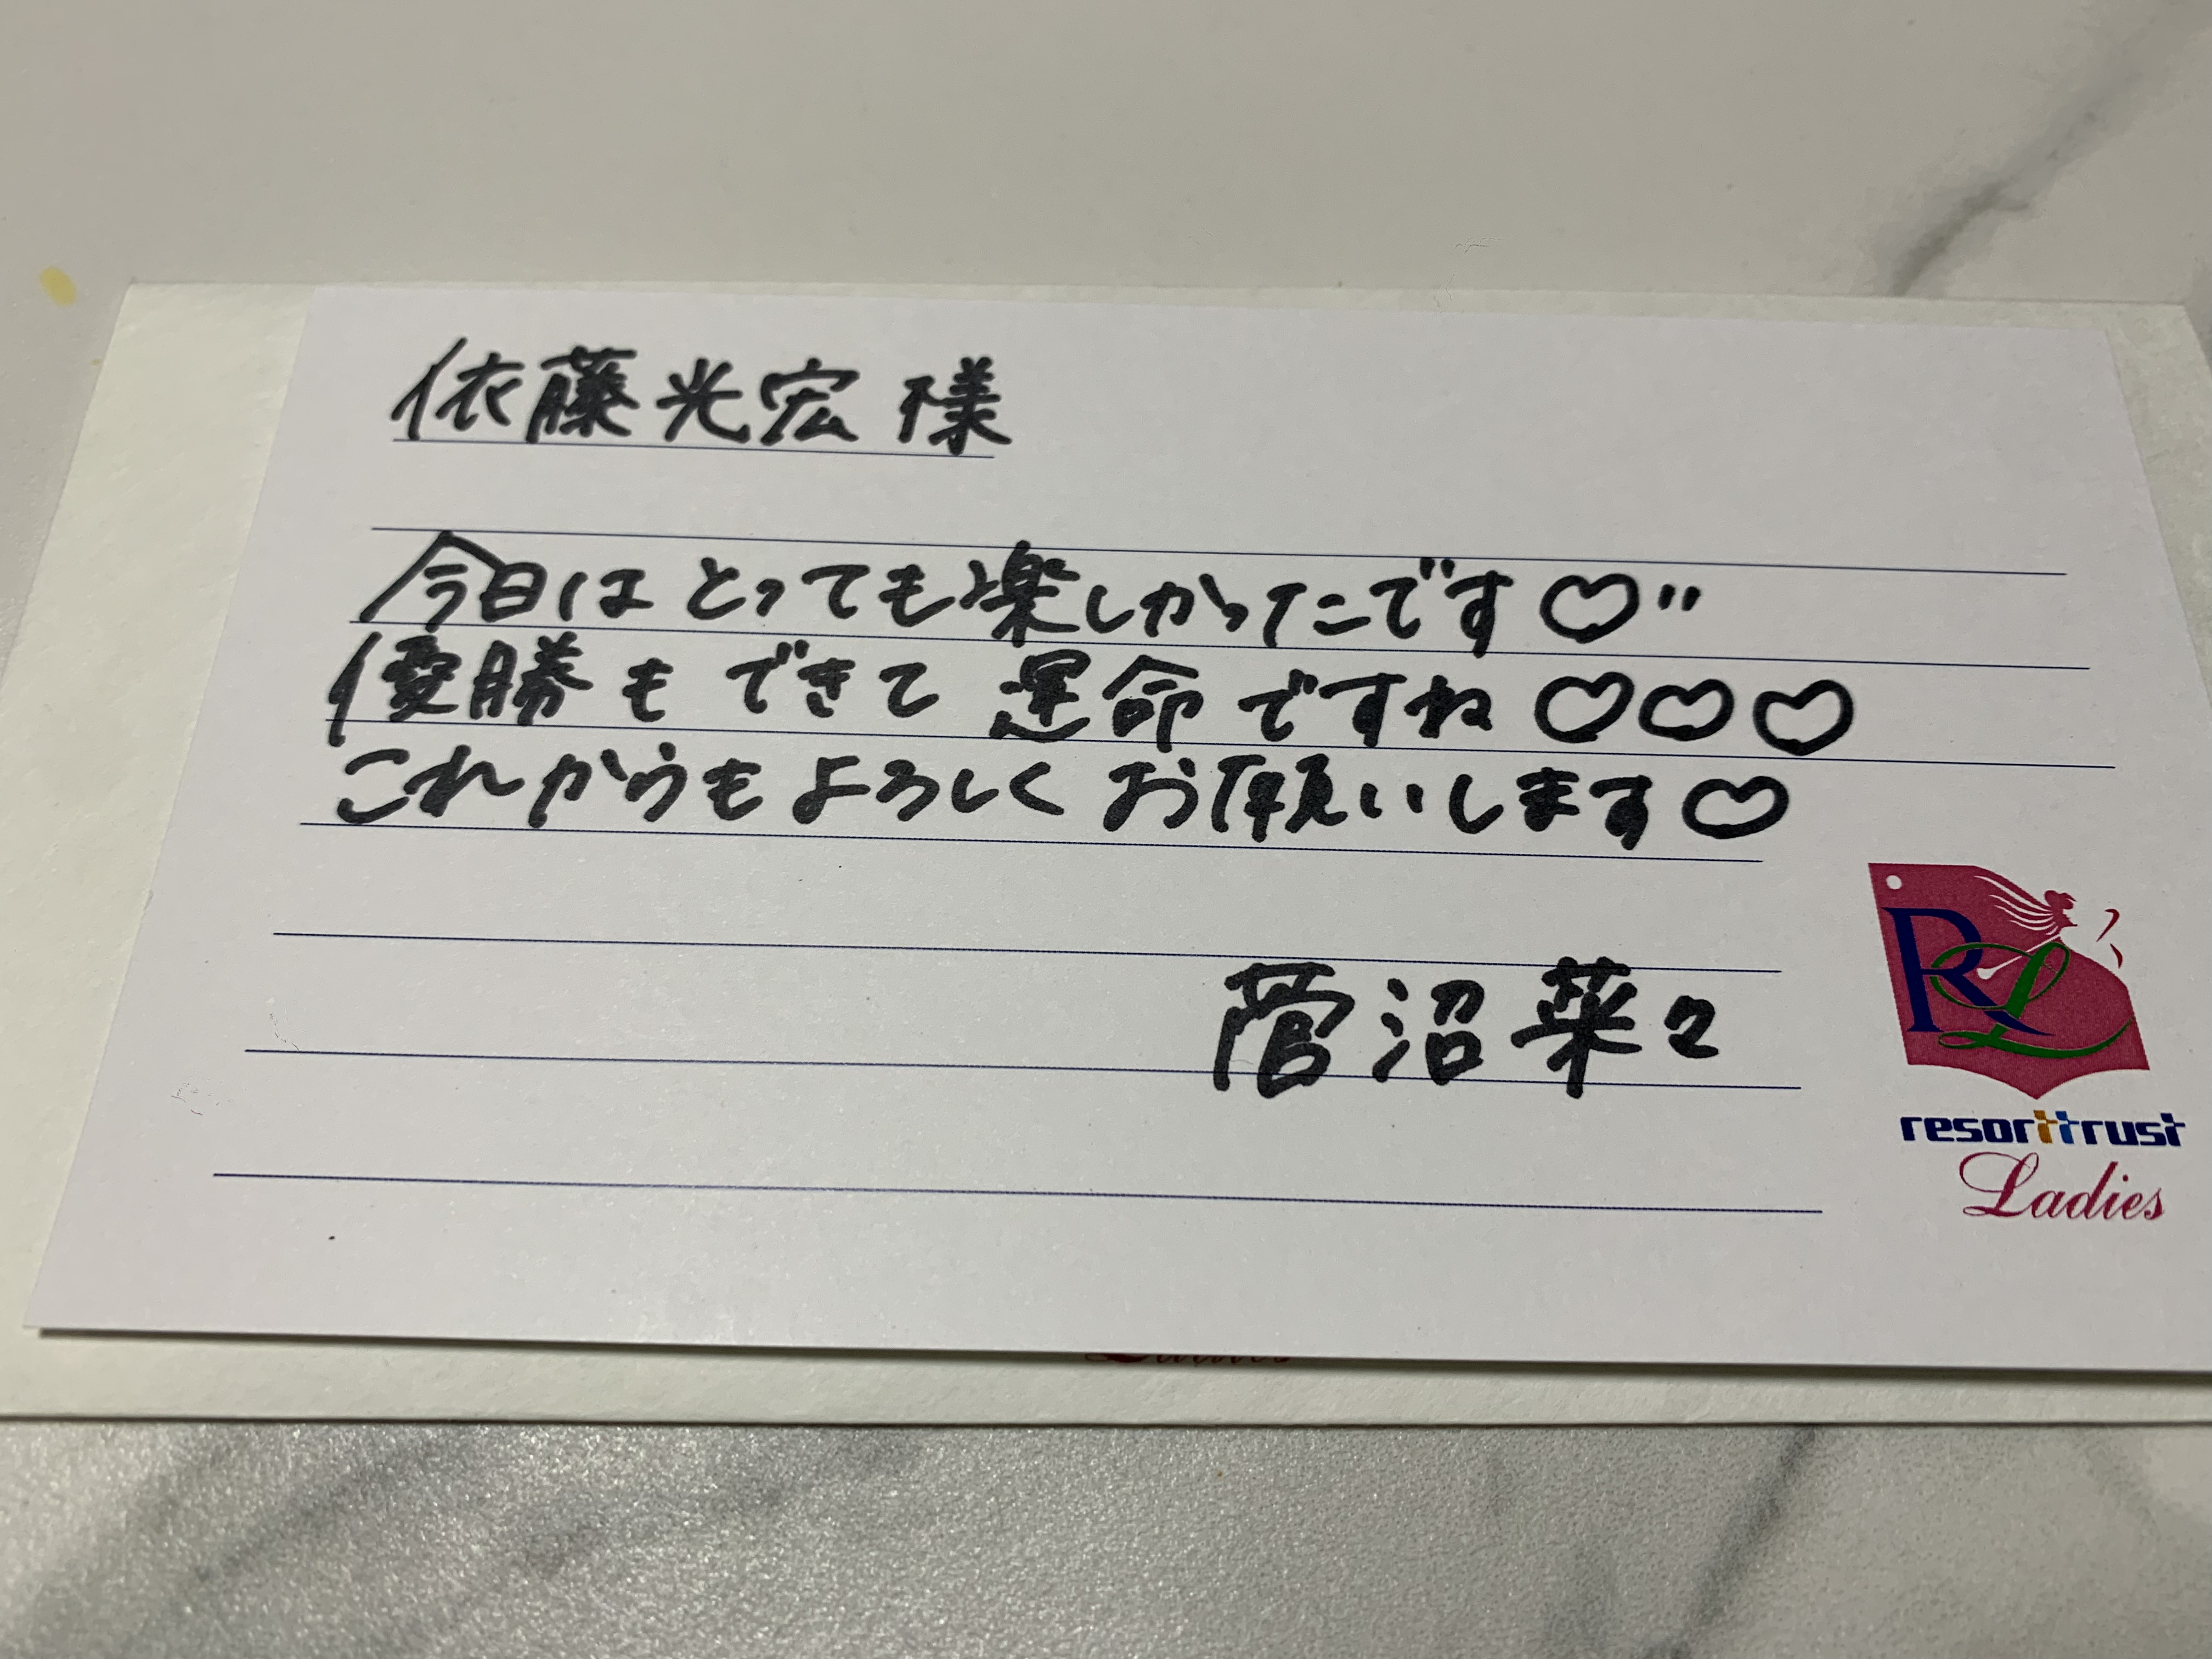 依藤光宏 様
今日はとっても楽しかったです♡"
優勝もできて運命ですね♡♡♡
これからもよろしくお願いします♡
菅沼菜々
RL
resorttrust
Ladies
Ladies